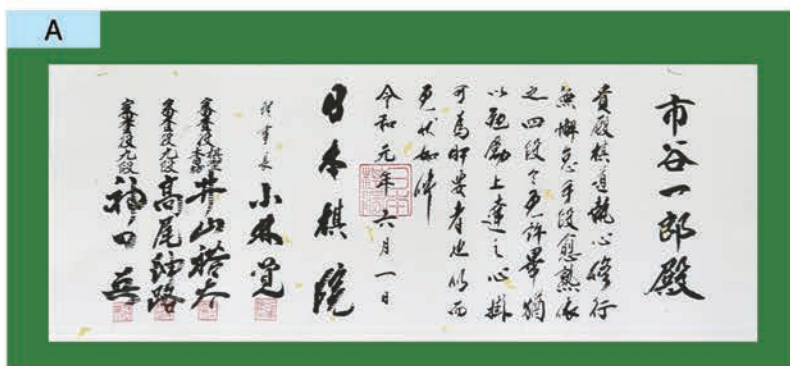 A
市谷一郎殿
貴殿棋道執心修行
無懈怠手段愈熟依
之四段令免許畢猶
以勉励上達之心掛
可為肝要者也仍而
免状如件
令和元年六月一日
日本棋院
理事長 小林覚
審査役 井山裕太
審査役九段 高尾紳路
審査役九段